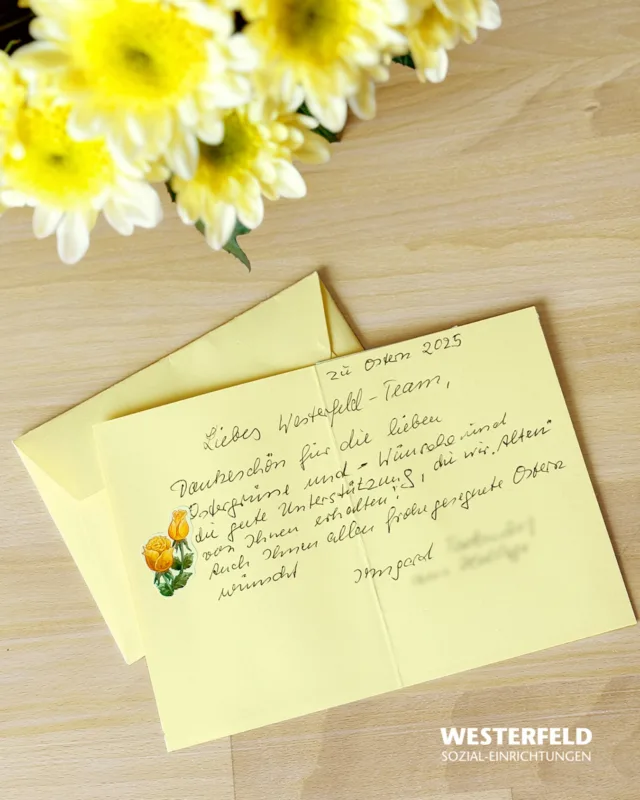 zu Ostern 2025
Liebes Westerfeld-Team,
Dankeschön für die lieben
Ostergrüsse und -Wünsche und
die gute Unterstützung, die wir „Alten"
von Ihnen erhalten!
Auch Ihnen allen frohe gesegnete Ostern
wünscht Irmgard
WESTERFELD
SOZIAL-EINRICHTUNGEN